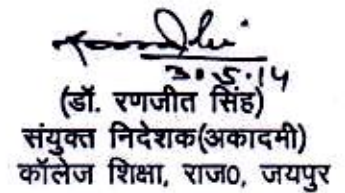 30.5.14
(डॉ. रणजीत सिंह)
संयुक्त निदेशक(अकादमी)
कॉलेज शिक्षा, राज0, जयपुर